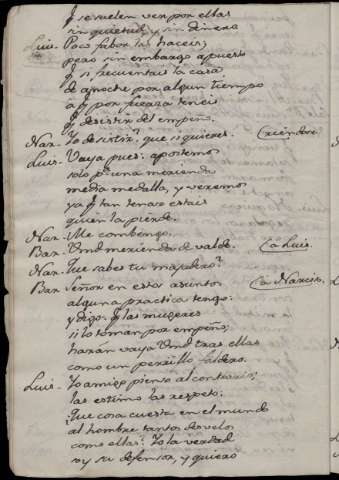 q.e suelen ver por ellas
sin quietud, y sin dinero
Luis. Poco fabor las haceis;
pero sin embargo apuesto
q.e si frecuentais la casa
de anoche por algun tiempo
a q.e por fuerza teneis
q.e desistir del empeño.
Nar. Yo desistir? que si quieres. (riendose.
Luis. Vaya pues: apostemos
solo p.r una merienda
media medalla, y veremos
ya q.e tan tenaz estais
quien la pierde.
Nar. Me combengo.
Bar. Vmd merienda de valde. (a Luis.
Nar. Que sabes tu majadero?
Bar. Señor en estos asuntos (a Narcis.
alguna practica tengo:
y digo: q.e las mugeres
si lo toman por empeño;
harán vaya Vmd tras ellas
como un perrillo faldero.
Luis. Yo amigo pienso al contrario;
las estimo las respeto:
Que cosa cuesta en el mundo
al hombre tantos desvelos
como ellas? Yo la verdad
soy su defensor, y quiero